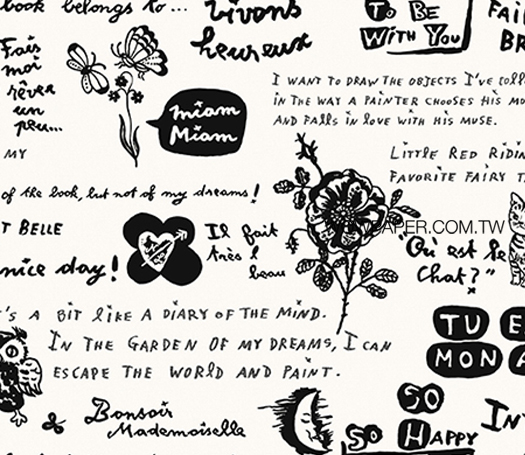 book belongs to ...
vivons
heureux
To Be
With You
FAI
BR
Fais
moi
rêver
un
peu...
miam
Miam
I WANT TO DRAW THE OBJECTS I'VE COLL
IN THE WAY A PAINTER CHOOSES HIS MU
AND FALLS IN LOVE WITH HIS MUSE.
MY
LITTLE RED RIDIN
FAVORITE FAIRY T
of the book, but not of my dreams!
T BELLE
nice day!
Il fait
très
beau
PAPER.COM.TW
"Où est le
Chat?"
'S A BIT LIKE A DIARY OF THE MIND.
IN THE GARDEN OF MY DREAMS, I CAN
ESCAPE THE WORLD AND PAINT.
TU E
MON A
& Bonsoir
Mademoiselle
SO
SO HAPPY
IN